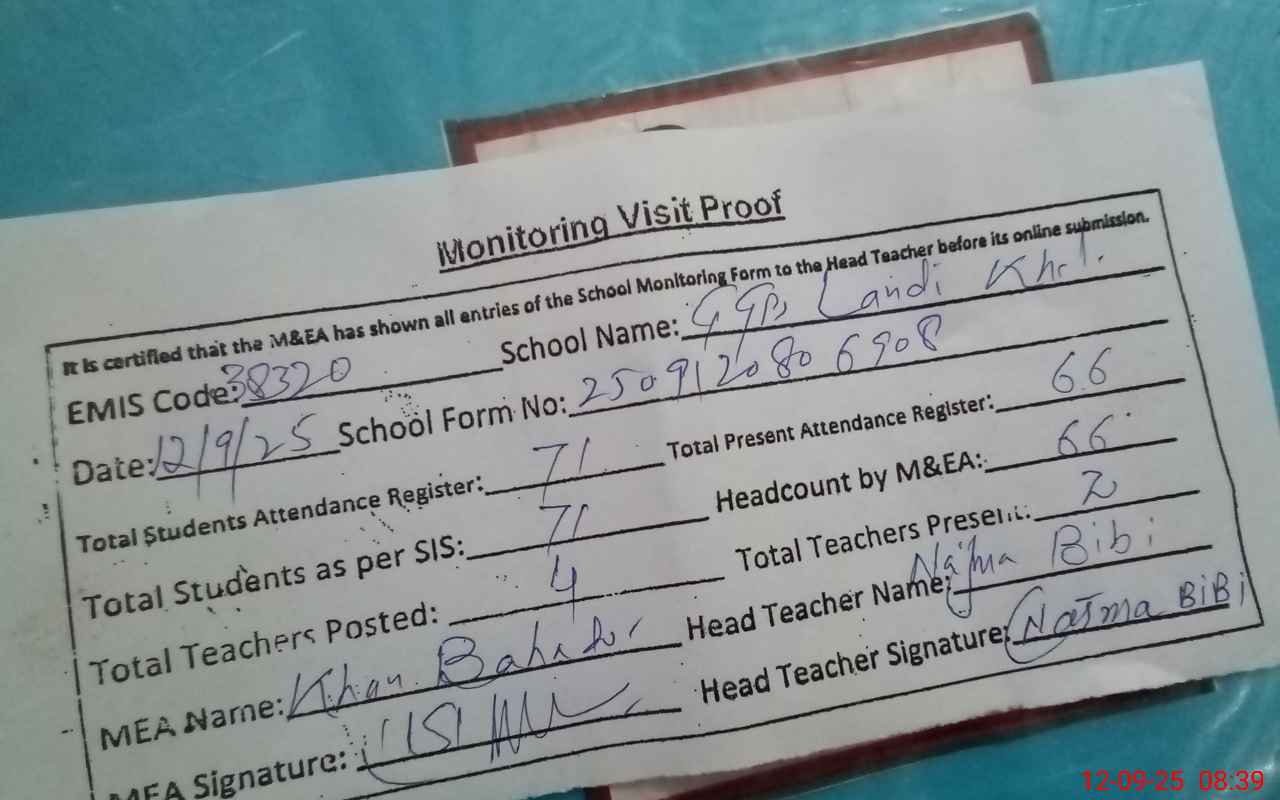 Monitoring Visit Proof
It is certified that the M&EA has shown all entries of the School Monitoring Form to the Head Teacher before its online submission.
EMIS Code: 38320 School Name: GGPS Landi Khel
Date: 12/9/25 School Form No: 2509120806908
Total Students Attendance Register: 71 Total Present Attendance Register: 66
Total Students as per SIS: 71 Headcount by M&EA: 66
Total Teachers Posted: 4 Total Teachers Present: 2
MEA Name: Khan Bahadur Head Teacher Name: Najma Bibi
MEA Signature: Head Teacher Signature: Najma BiBi
12-09-25 08:39